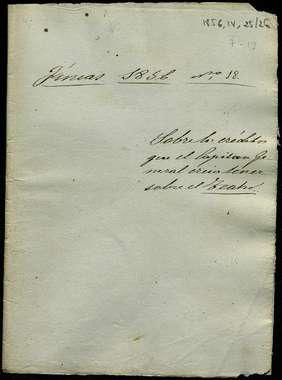 1856, IV, 25/26
7-19
Fincas 1856 nº 18.
Sobre los créditos
que el Capitan Ge
neral cria tener
sobre el Teatro.